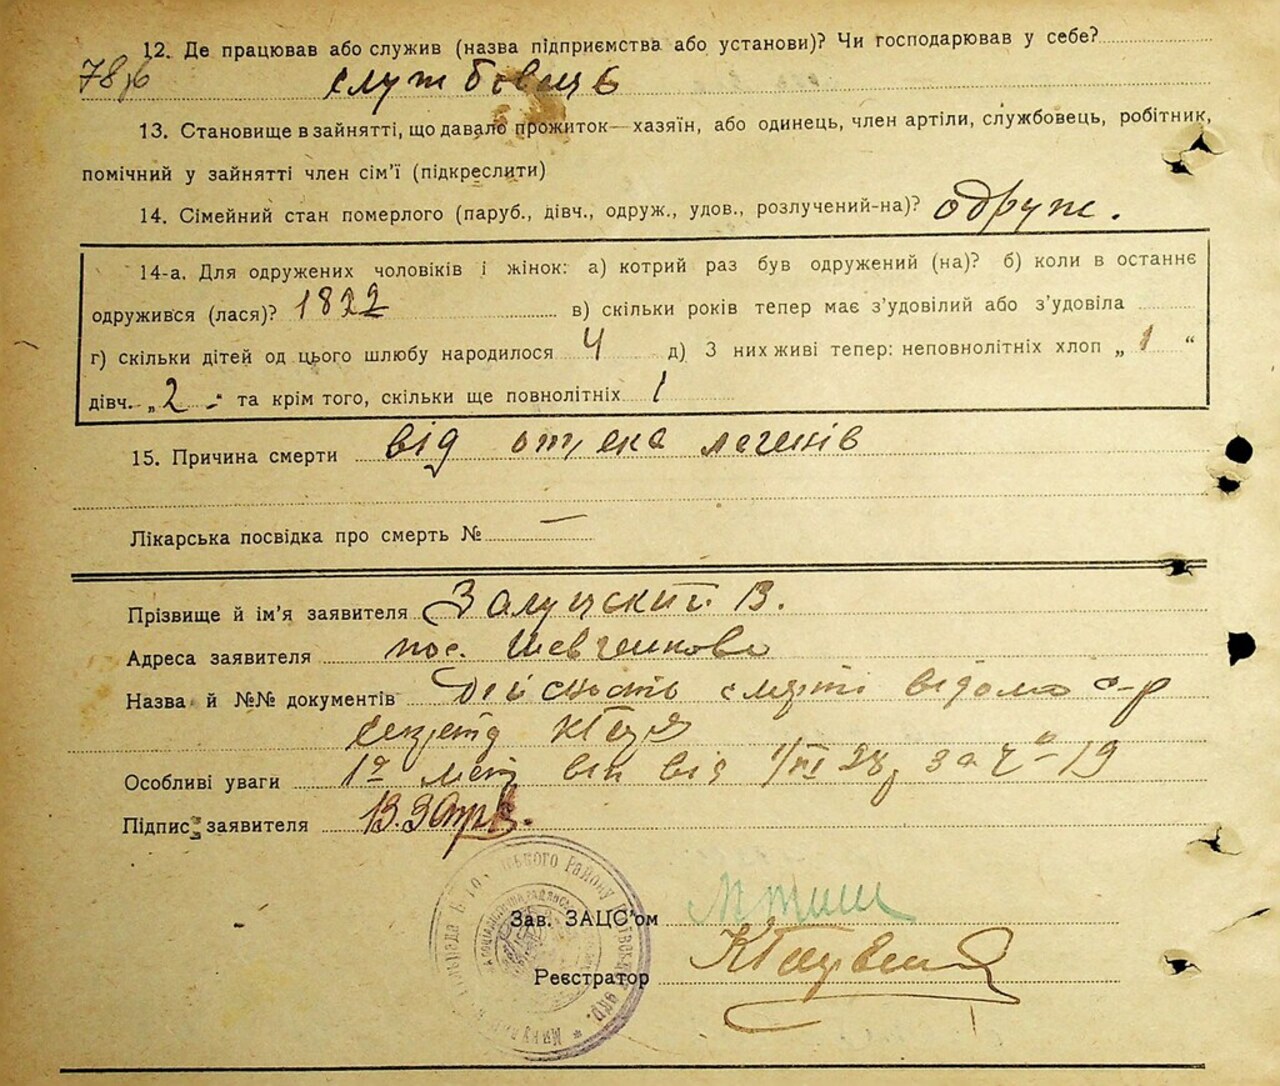 12. Де працював або служив (назва підприємства або установи)? Чи господарював у себе?
78,6 службовець
13. Становище в зайнятті, що давало прожиток—хазяїн, або одинець, член артілі, службовець, робітник,
помічний у зайнятті член сім'ї (підкреслити)
14. Сімейний стан померлого (паруб., дівч., одруж., удов., розлучений-на)? одруж.
14-а. Для одружених чоловіків і жінок: а) котрий раз був одружений (на)? б) коли в останнє
одружився (лася)? 1822 в) скільки років тепер має з'удовілий або з'удовіла
г) скільки дітей од цього шлюбу народилося 4 д) З них живі тепер: неповнолітніх хлоп „ 1 “
дівч. „ 2 “ та крім того, скільки ще повнолітніх 1
15. Причина смерти від отека легенів
Лікарська посвідка про смерть № —
Прізвище й ім'я заявителя Залуцский В.
Адреса заявителя пос. Шевченкова
Назва й №№ документів Дейсность смерті відома
Особливі уваги
Підпис заявителя
Зав. ЗАЦС'ом
Реєстратор